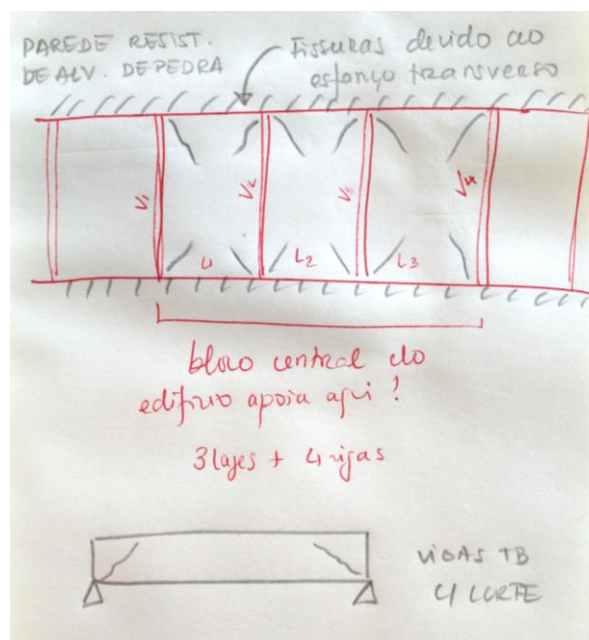 PAREDE RESIST.
DE ALV. DE PEDRA
Fissuras devido ao
esforço transverso
V1
V2
V3
V4
L1
L2
L3
bloco central do
edifício apoia aqui !
3 lajes + 4 vigas
VIGAS TB
C/ CORTE